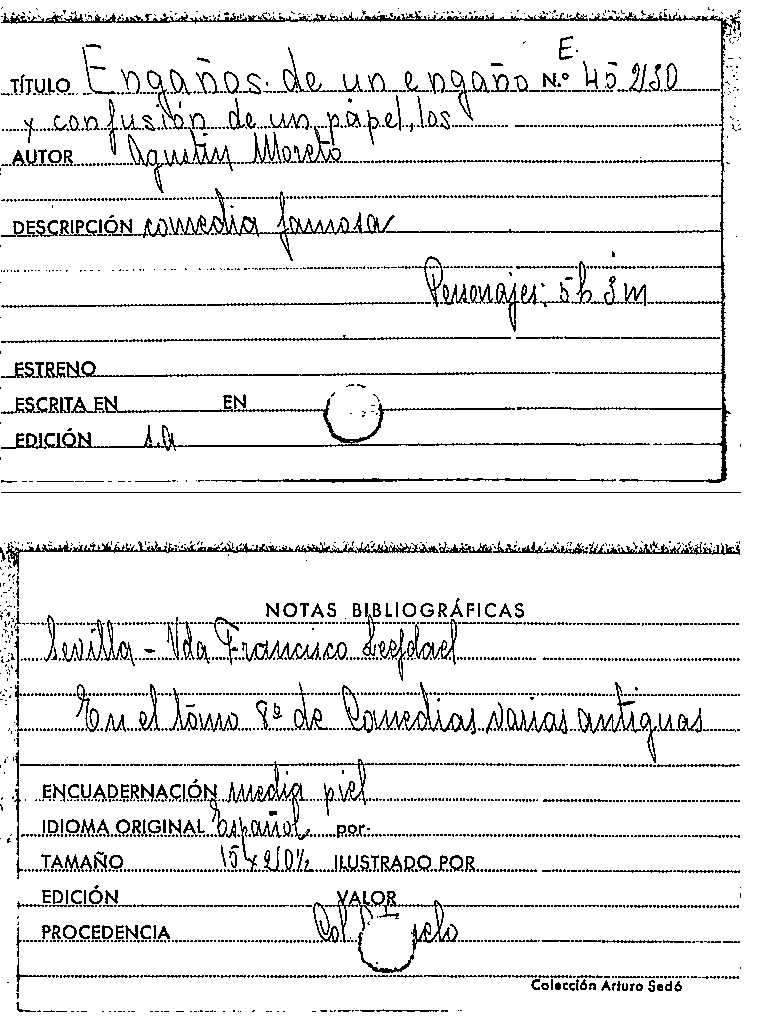 E.
TÍTULO Engaños de un engaño N.º 45 2130
y confusión de un papel, los
AUTOR Agustín Moreto
DESCRIPCIÓN comedia famosa
Personajes: 5 h 3 m
ESTRENO
ESCRITA EN EN
EDICIÓN s.a
NOTAS BIBLIOGRÁFICAS
Sevilla - Vda Francisco Leefdael
En el tomo 8º de Comedias varias antiguas
ENCUADERNACIÓN media piel
IDIOMA ORIGINAL Español por
TAMAÑO ILUSTRADO POR
EDICIÓN VALOR
PROCEDENCIA Col
Colección Arturo Sedó